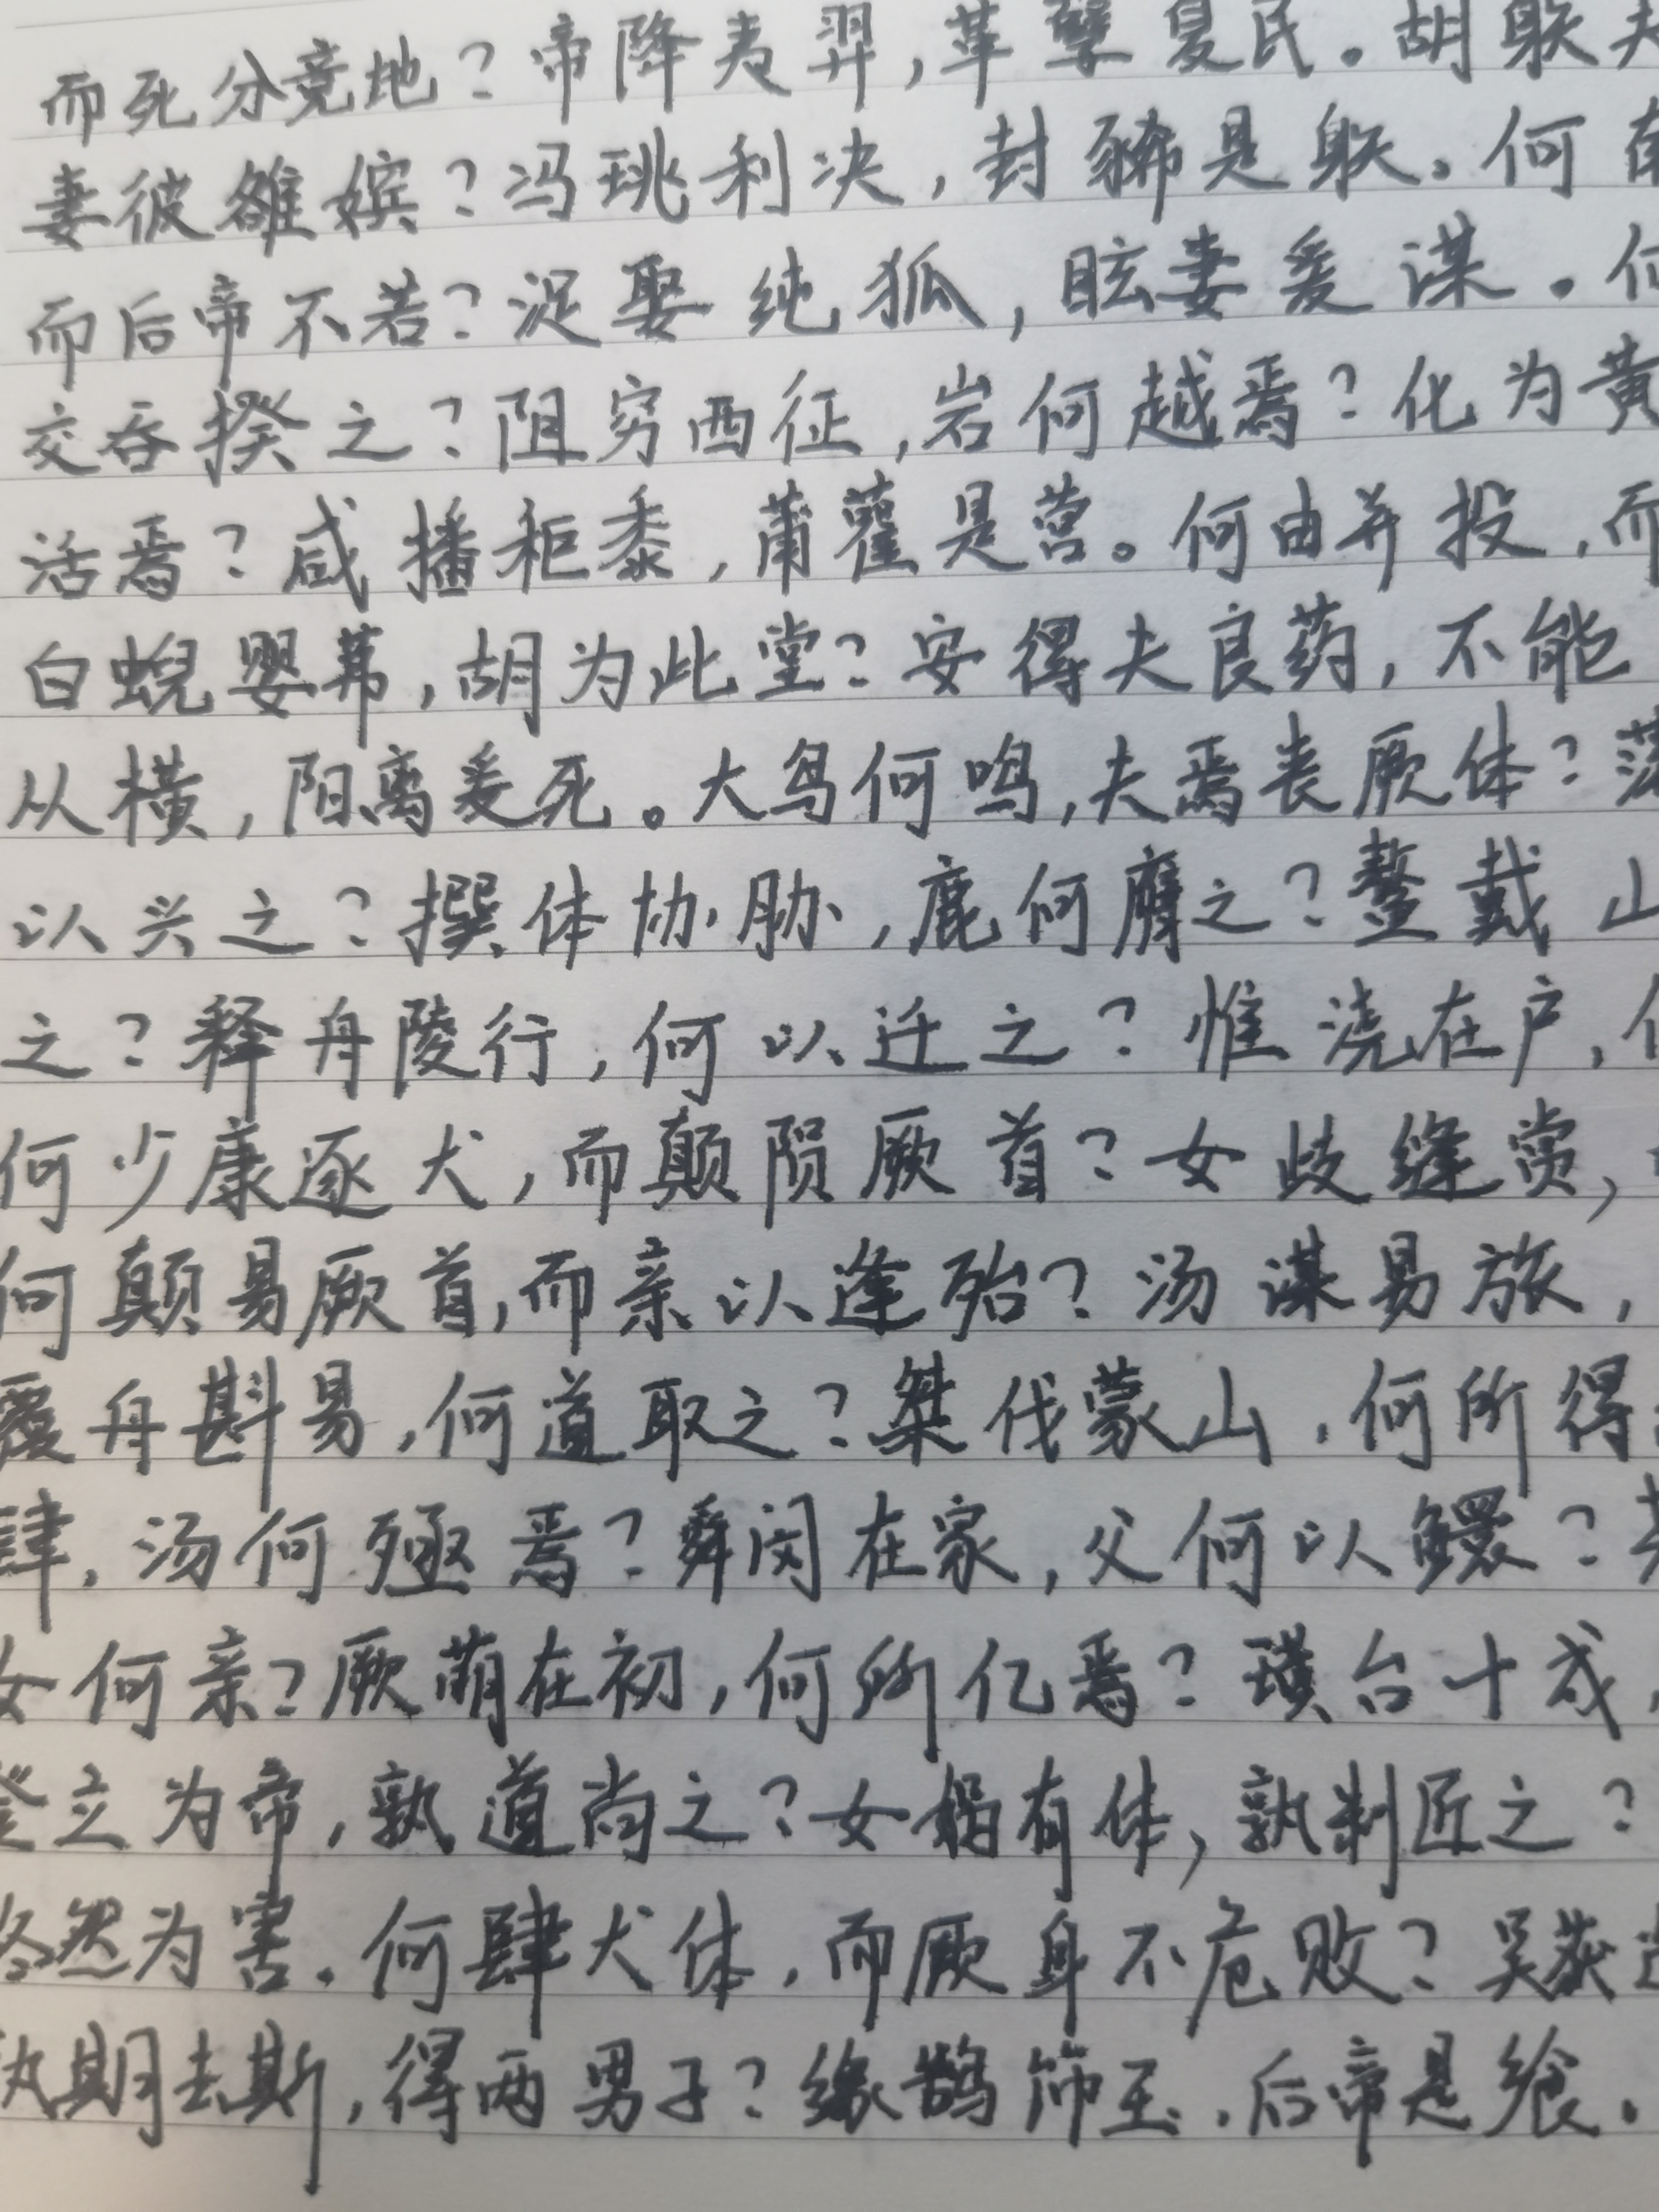 而死分竟地？帝降夷羿，革孽夏民。胡躲夫
妻彼雒嫔？冯珧利决，封豨是躲。何
而后帝不若？浞娶纯狐，眩妻爰谋。何
交吞揆之？阻穷西征，岩何越焉？化为黄
活焉？咸播秬黍，莆雚是营。何由并投，而
白蜺婴茀，胡为此堂？安得夫良药，不能
从横，阳离爰死。大鸟何鸣，夫焉丧厥体？蓱
以兴之？撰体协胁，鹿何膺之？鳌戴山
之？释舟陵行，何以迁之？惟浇在户，何
何少康逐犬，而颠陨厥首？女歧缝裳，
何颠易厥首，而亲以逢殆？汤谋易旅，
覆舟斟易，何道取之？桀伐蒙山，何所得
肆，汤何殛焉？舜闵在家，父何以鳏？
女何亲？厥萌在初，何所亿焉？璜台十成，
登立为帝，孰道尚之？女娲有体，孰制匠之？
终然为害。何肆犬体，而厥身不危败？吴获迄
孰期去斯，得两男子？缘鹄饰玉，后帝是飨。